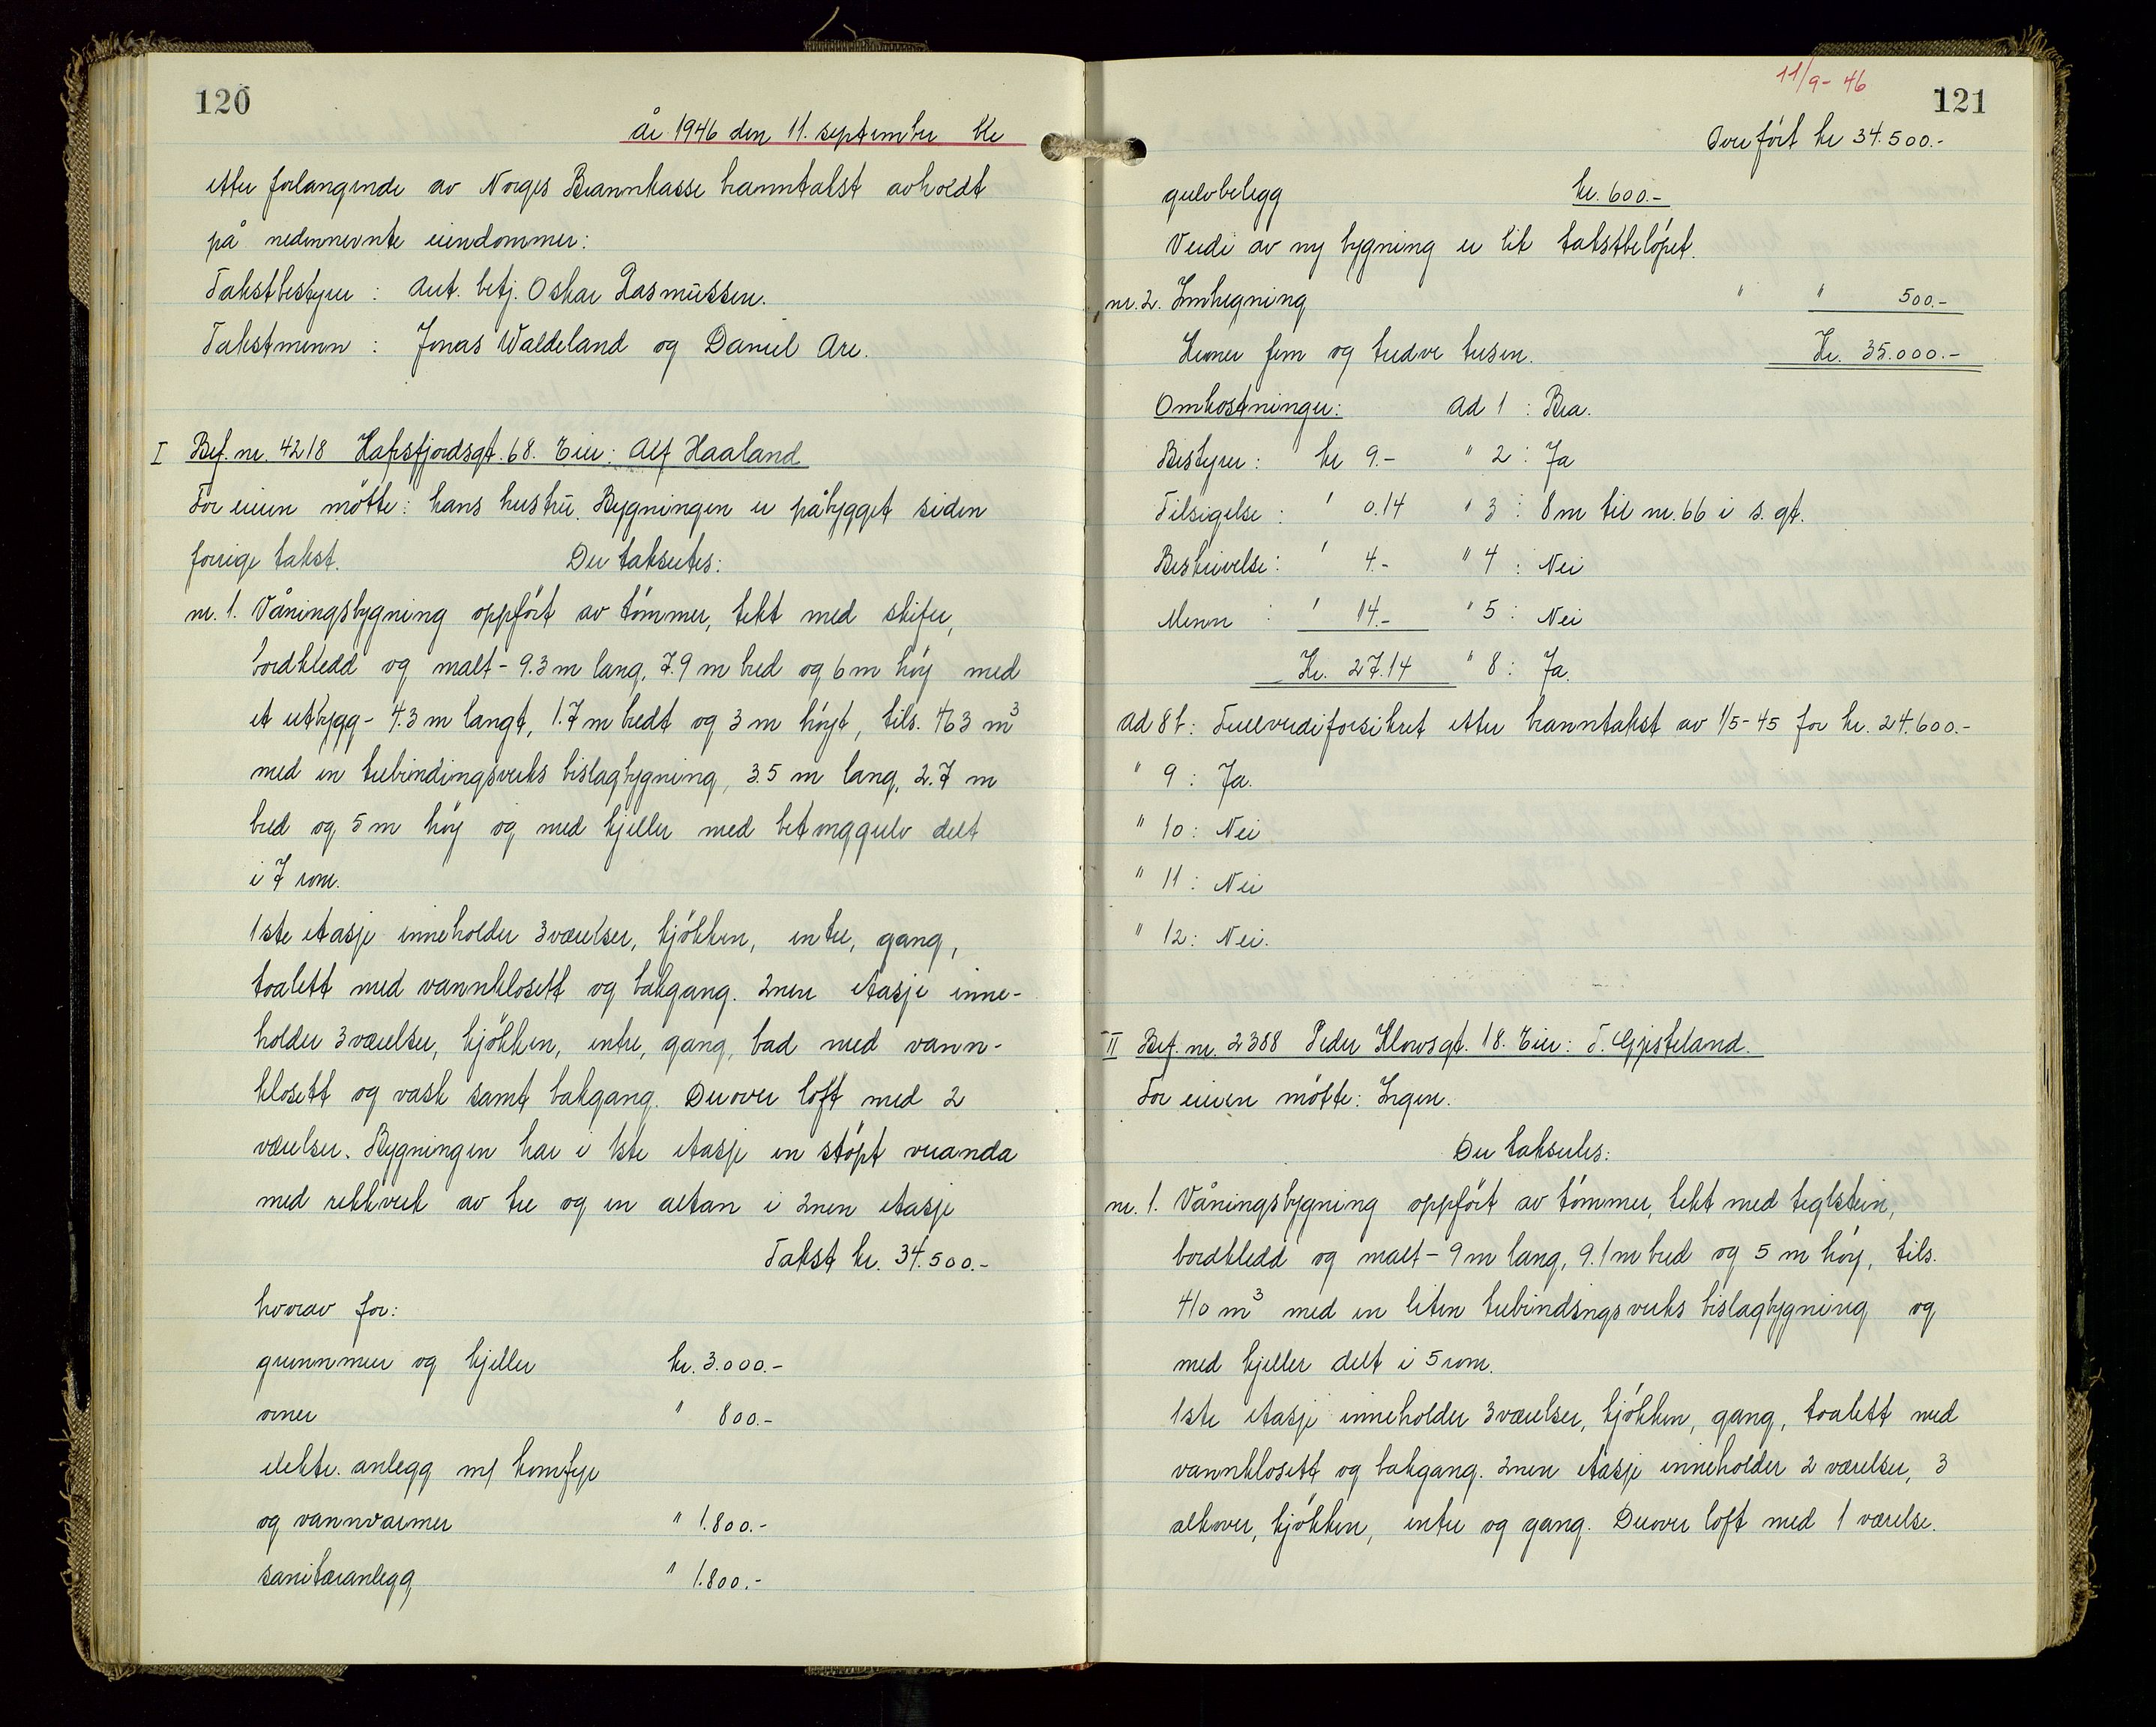 120
År 1946 den 11. september ble
etter forlangende av Norges Brannkasse branntakst avholdt
på nedennevnte eiendommer:
Takstbestyrer : Aut. betj. Oskar Rasmussen.
Takstmenn : Jonas Waldeland og Daniel Are.
I Bef. nr. 4218 Hafrsfjordsgt. 68. Eier: Alf Haaland
For eieren møtte: hans hustru. Bygningen er påbygget siden
forrige takst. Der takseres:
nr. 1. Våningsbygning oppført av tømmer, tekt med skifer,
bordkledd og malt - 9.3 m lang, 7.9 m bred og 6 m høy med
et utbygg - 4.3 m langt, 1.7 m bredt og 3 m høyt, tils. 463 m³
med en trebindingsverks bislagbygning, 3.5 m lang, 2.7 m
bred og 5 m høy og med kjeller med betonggulv delt
i 7 rom.
1ste etasje inneholder 3 værelser, kjøkken, entre, gang,
toalett med vannklosett og bakgang. 2nen etasje inne-
holder 3 værelser, kjøkken, entre, gang, bad med vann-
klosett og vask samt bakgang. Derover loft med 2
værelser. Bygningen har i 1ste etasje en støpt veranda
med rekkverk av tre og en altan i 2nen etasje
Takst kr. 34.500.-
hvorav for:
grunnmur og kjeller kr. 3.000.-
ovner " 800.-
elektr. anlegg m/ komfyr
og vannvarmer " 1.800.-
sanitæranlegg " 1.800.-
11/9-46
121
Overført kr 34.500.-
gulvbelegg kr. 600.-
Verdi av ny bygning er lik takstbeløpet.
nr. 2. Innhegning " " 500.-
Kroner fem og tredve tusen. Kr. 35.000.-
Omkostninger: ad 1 : Bra.
Bestyrer : kr 9.- " 2 : Ja
Tilsigelse : " 0.14 " 3 : 8 m til nr. 66 i s. gt.
Beskrivelse : " 4.- " 4 : Nei
Menn : " 14.- " 5 : Nei
Kr. 27.14 " 8 : Ja.
ad 8b : Fullverdiforsikret etter branntakst av 1/5-45 for kr. 24.600.-
" 9 : Ja.
" 10 : Nei
" 11 : Nei
" 12 : Nei.
II Bef. nr. 2388 Peder Klowsgt. 18. Eier: T. Gjesteland.
For eieren møtte: Ingen.
Der takseres:
nr. 1. Våningsbygning oppført av tømmer, tekt med teglstein,
bordkledd og malt - 9 m lang, 9.1 m bred og 5 m høy, tils.
410 m³ med en liten trebindingsverks bislagbygning og
med kjeller delt i 5 rom.
1ste etasje inneholder 3 værelser, kjøkken, gang, toalett med
vannklosett og bakgang. 2nen etasje inneholder 2 værelser, 3
alkover, kjøkken, entre og gang. Derover loft med 1 værelse.